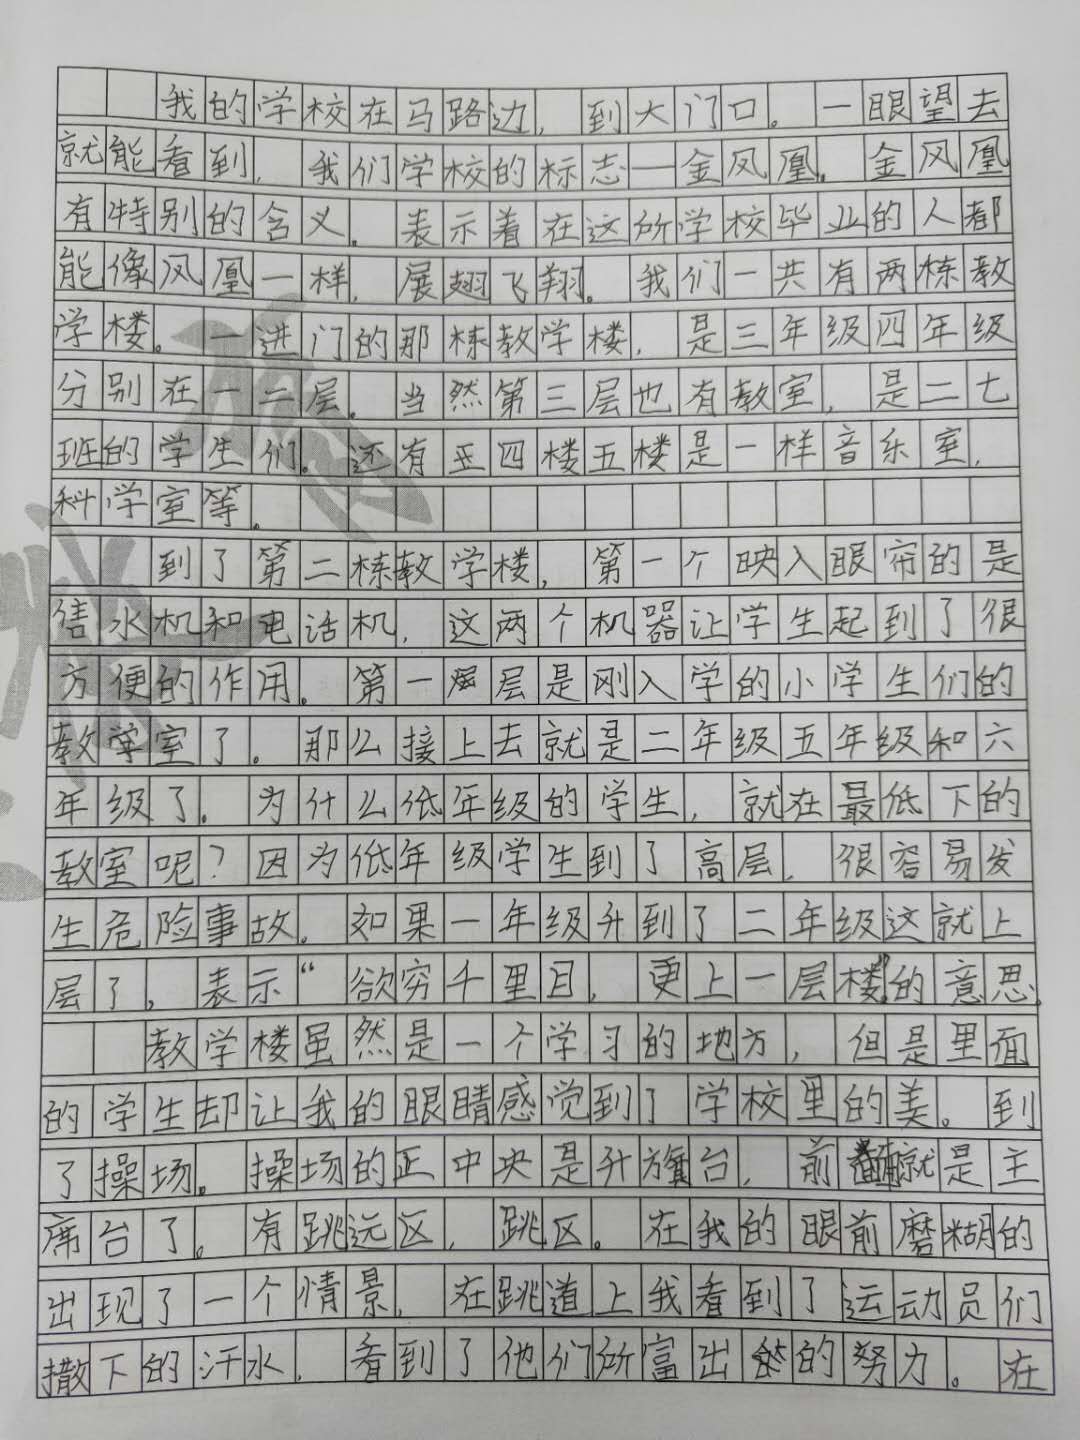 我的学校在马路边，到大门口。一眼望去
就能看到，我们学校的标志—金凤凰。金凤凰
有特别的含义。表示着在这所学校毕业的人都
能像凤凰一样，展翅飞翔。我们一共有两栋教
学楼。一进门的那栋教学楼，是三年级四年级
分别在一二层。当然第三层也有教室，是二七
班的学生们。还有五四楼五楼是一样音乐室，
科学室等。
到了第二栋教学楼，第一个映入眼帘的是
售水机和电话机，这两个机器让学生起到了很
方便的作用。第一层是刚入学的小学生们的
教室了。那么接上去就是二年级五年级和六
年级了。为什么低年级的学生，就在最低下的
教室呢？因为低年级学生到了高层，很容易发
生危险事故。如果一年级升到了二年级这就上
层了，表示“欲穷千里目，更上一层楼”的意思。
教学楼虽然是一个学习的地方，但是里面
的学生却让我的眼睛感觉到了学校里的美。到
了操场。操场的正中央是升旗台，前面就是主
席台了。有跳远区，跳区。在我的眼前磨糊的
出现了一个情景，在跳道上我看到了运动员们
撒下的汗水，看到了他们所富出的努力。在